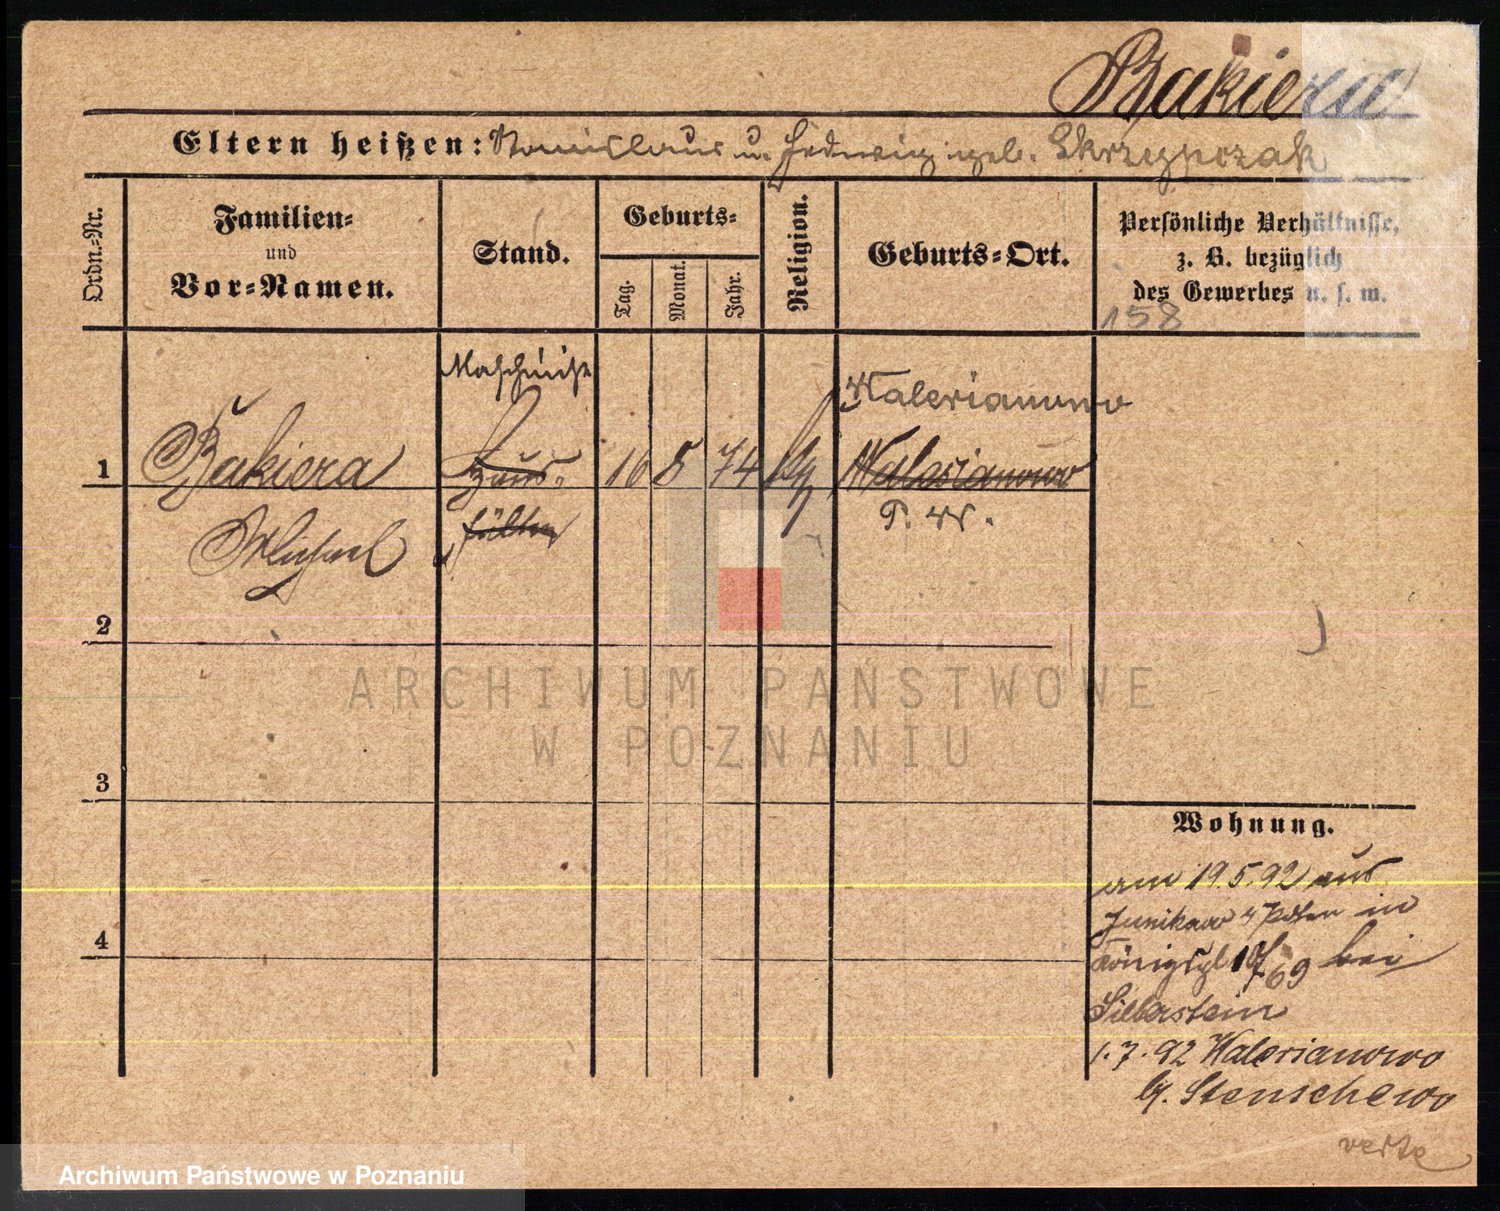 Bakiera
Eltern heißen: Stanislaus u. Hedwig geb. Skrzypczak
Ordn.-Nr.
Familien-
und
Vor-Namen.
Stand.
Geburts-
Tag.
Monat.
Jahr.
Religion.
Geburts-Ort.
Persönliche Verhältnisse,
z. B. bezüglich
des Gewerbes u. s. w.
158
Maschinist
Walerianowo
1 Bakiera Haus- 16 8 74 Walerianowo
Michael hälter P. W.
2
3
4
Wohnung.
am 19.5.92 aus
Junikowo Posen in
Königspl 10/69 bei
Silberstein
1.7.92 Walerianowo
b. Stenschewo
verte
ARCHIWUM PAŃSTWOWE
W POZNANIU
Archiwum Państwowe w Poznaniu